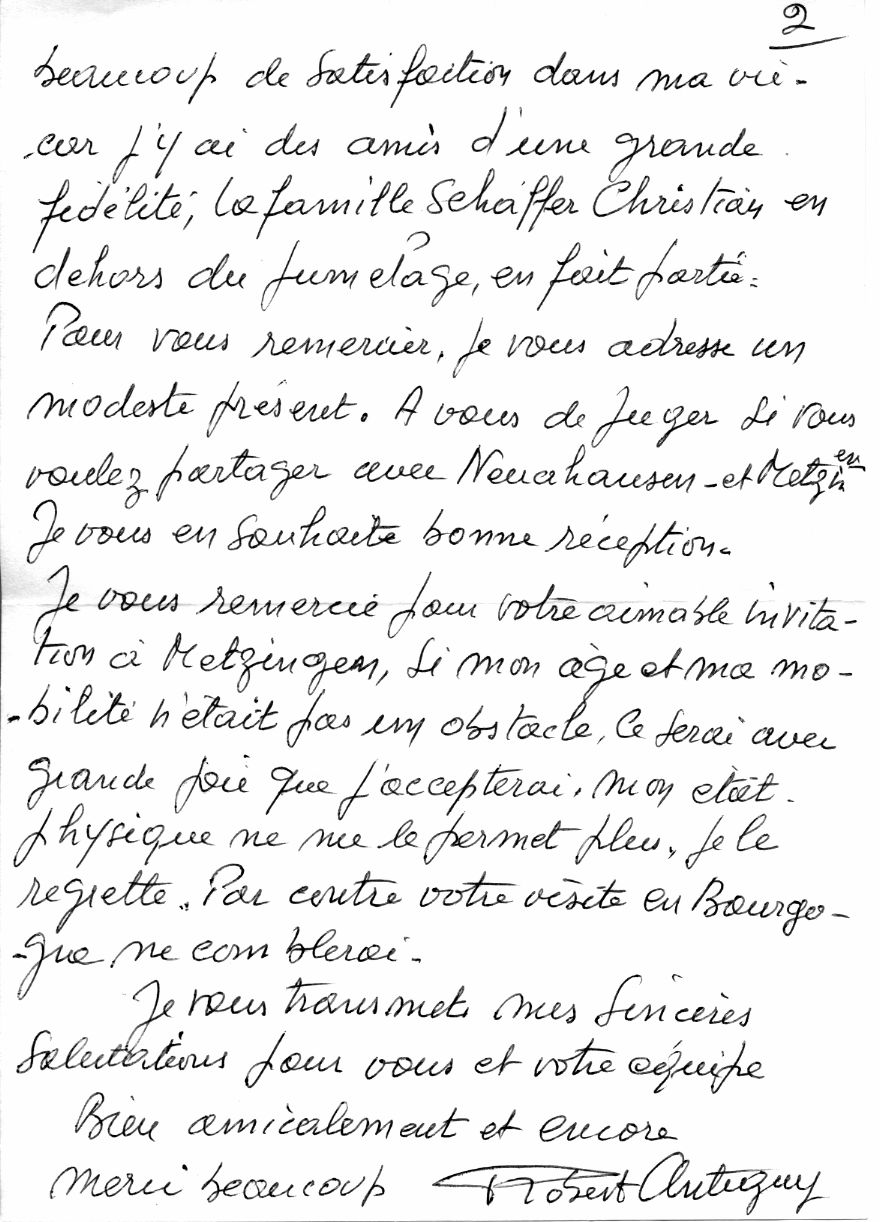 2
beaucoup de satisfaction dans ma vie -
car j'y ai des amis d'une grande
fidélité, la famille Schäffer Christian en
dehors du jumelage, en fait partie.
Pour vous remercier, je vous adresse un
modeste présent. A vous de juger si vous
voulez partager avec Neuahausen - et Metzingen
Je vous en souhaite bonne réception.
Je vous remercie pour votre aimable invita-
tion à Metzingen, si mon âge et ma mo-
-bilité n'était pas un obstacle, ce serai avec
grande joie que j'accepterai. Mon état
physique ne me le permet plus, je le
regrette. Par contre votre visite en Bourgo-
-gne me comblerai.
Je vous transmets mes sincères
salutations pour vous et votre équipe
Bien amicalement et encore
merci beaucoup Robert